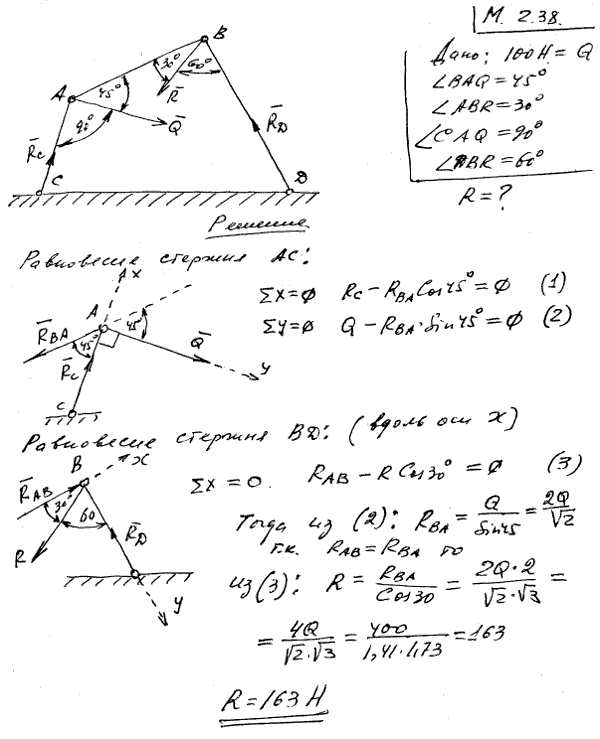 М. 2.38.
Дано: 100Н = Q
∠BAQ = 45°
∠ABR = 30°
∠CAQ = 90°
∠DBR = 60°
R = ?
B
30°
60°
A
45°
R̄
Q̄
90°
R̄c
R̄D
C
D
Решение
Равновесие стержня АС:
x
A
R̄BA
45°
45°
Q̄
R̄c
y
C
ΣX=0 Rc – RBA Cos45° = 0 (1)
ΣY=0 Q – RBA·Sin45° = 0 (2)
Равновесие стержня BD: (вдоль оси x)
B
x
R̄AB
30°
60
R
R̄D
y
ΣX = 0. RAB – R Cos30° = 0 (3)
Тогда из (2): RBA = Q/Sin45 = 2Q/√2
т.к. RAB = RBA то
из (3): R = RBA/Cos30 = 2Q·2/√2·√3 =
= 4Q/√2·√3 = 400/1,41·1,73 = 163
R = 163 Н